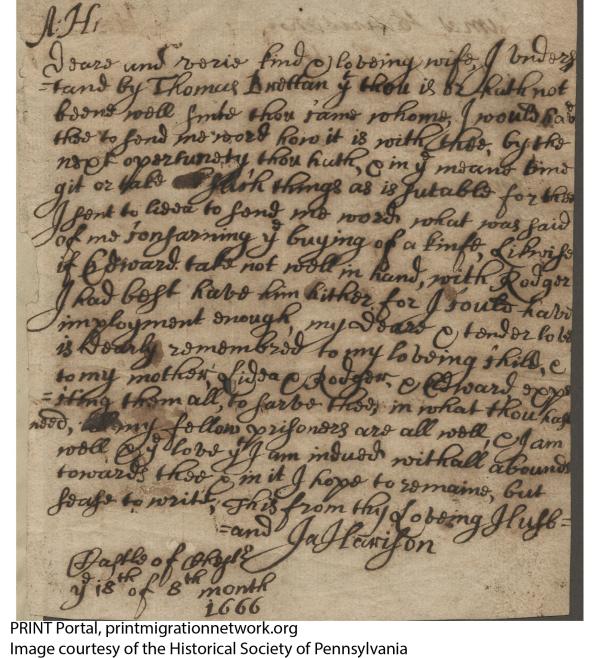 A: H:
Deare and verie kind & loveing wife, I unders
=tand by Thomas Brettan yt thou is or hath not
beene well sinse thou came whome, I would have
thee to send me word how it is with thee, by the
next opertunety thou hath, & in ye meane time
git or take such things as is sutable for thee
I sent to Lidea to send me word what was said
of me consarning ye buying of a kinfe, Likwise
if Edward take not well in hand, with Rodger
I had best have him hither for I could have
imployment enough, my deare & tender love
is dearly remembred to my loveing child, &
to my mother, Lidea & Rodger, & Edward expe
=cting them all to sarve thee, in what thou hast
need, my fellow prisoners are all well, & I am
well & ye love yt I am indued withall abounds
towards thee & in it I hope to remaine, but
sease to write, This from thy Loveing Husb=
=and Ja Harison
Castle of Chester
ye 18th of 8th month
1666
PRINT Portal, printmigrationnetwork.org
Image courtesy of the Historical Society of Pennsylvania